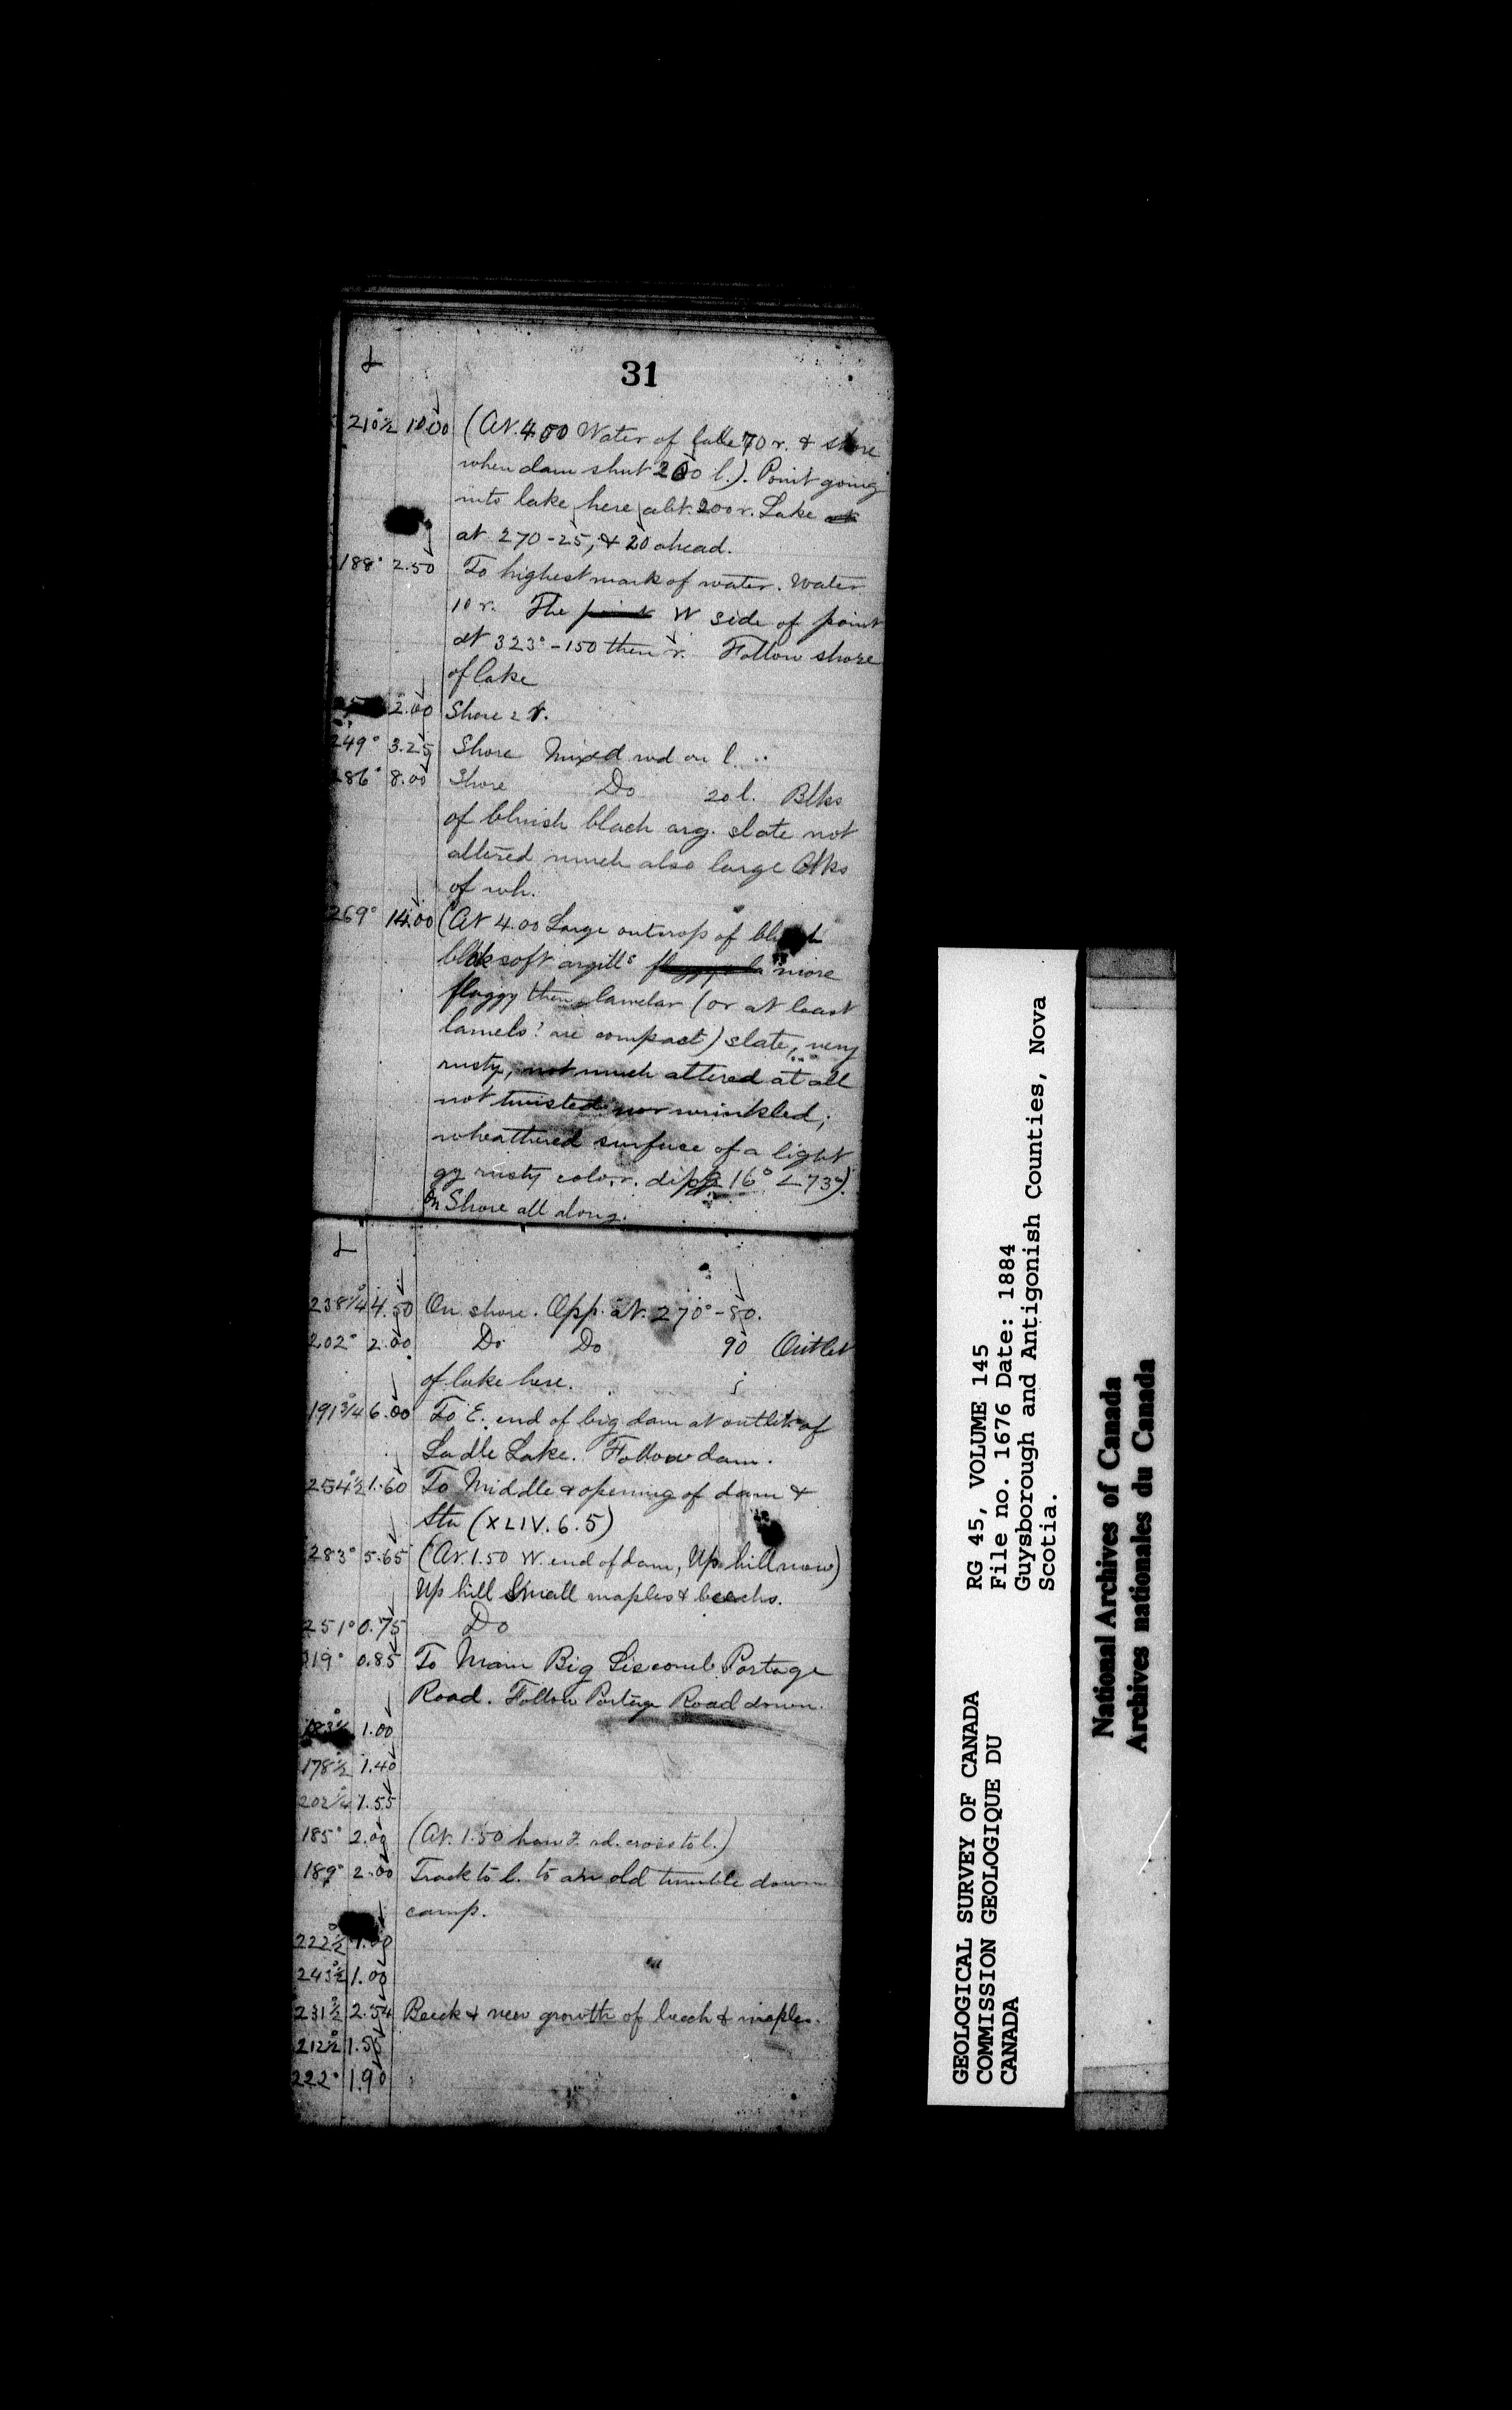 31
210°½ 10.00 (At 4.00 Water of lake 70 r. & shore
when dam shut 200 l.). Point going
into lake here abt. 200 r. Lake
at 270 - 25, & 20 ahead.
188° 2.50 To highest mark of water. Water
10 r. The point W side of point
at 323° - 150 then r. Follow shore
of lake
2.00 Shore 2 r.
249° 3.25 Shore Mixed wd on l.
286° 8.00 Shore Do 20 l. Blks
of bluish black arg. slate not
altered much also large Blks
of wh.
269° 14.00 (At 4.00 Large outcrop of
blk soft argills more
flaggy then lamelar (or at least
lamels: are compact) slate, very
rusty, not much altered at all
not twisted nor wrinkled;
wheathered surfuce of a light
gy rusty color. dipg 16° ∠73°).
On Shore all along.
238°¼ 4.50 On shore. Opp. at 270° - 80.
202° 2.00 Do Do 90 Outlet
of lake here.
191°¾ 6.00 To E. end of big dam at outlet of
Ladle Lake. Follow dam.
254°½ 1.60 To Middle & opening of dam &
Sta (XLIV. 6. 5)
283° 5.65 (At 1.50 W. end of dam, Up hill now)
Up hill Small maples & beechs.
251° 0.75 Do
219° 0.85 To Main Big Liscomb Portage
Road. Follow Portage Road down.
183°½ 1.00
178°½ 1.40
202°¼ 1.55
185° 2.00 (At 1.50 rd. cross to l.)
189° 2.00 Track to l. to an old tumble down
camp.
222°½ 1.00
243°½ 1.00
231°½ 2.54 Beech & new growth of beech & maples.
212°½ 1.50
222° 1.90
GEOLOGICAL SURVEY OF CANADA
COMMISSION GEOLOGIQUE DU
CANADA
RG 45, VOLUME 145
File no. 1676 Date: 1884
Guysborough and Antigonish Counties, Nova
Scotia.
National Archives of Canada
Archives nationales du Canada